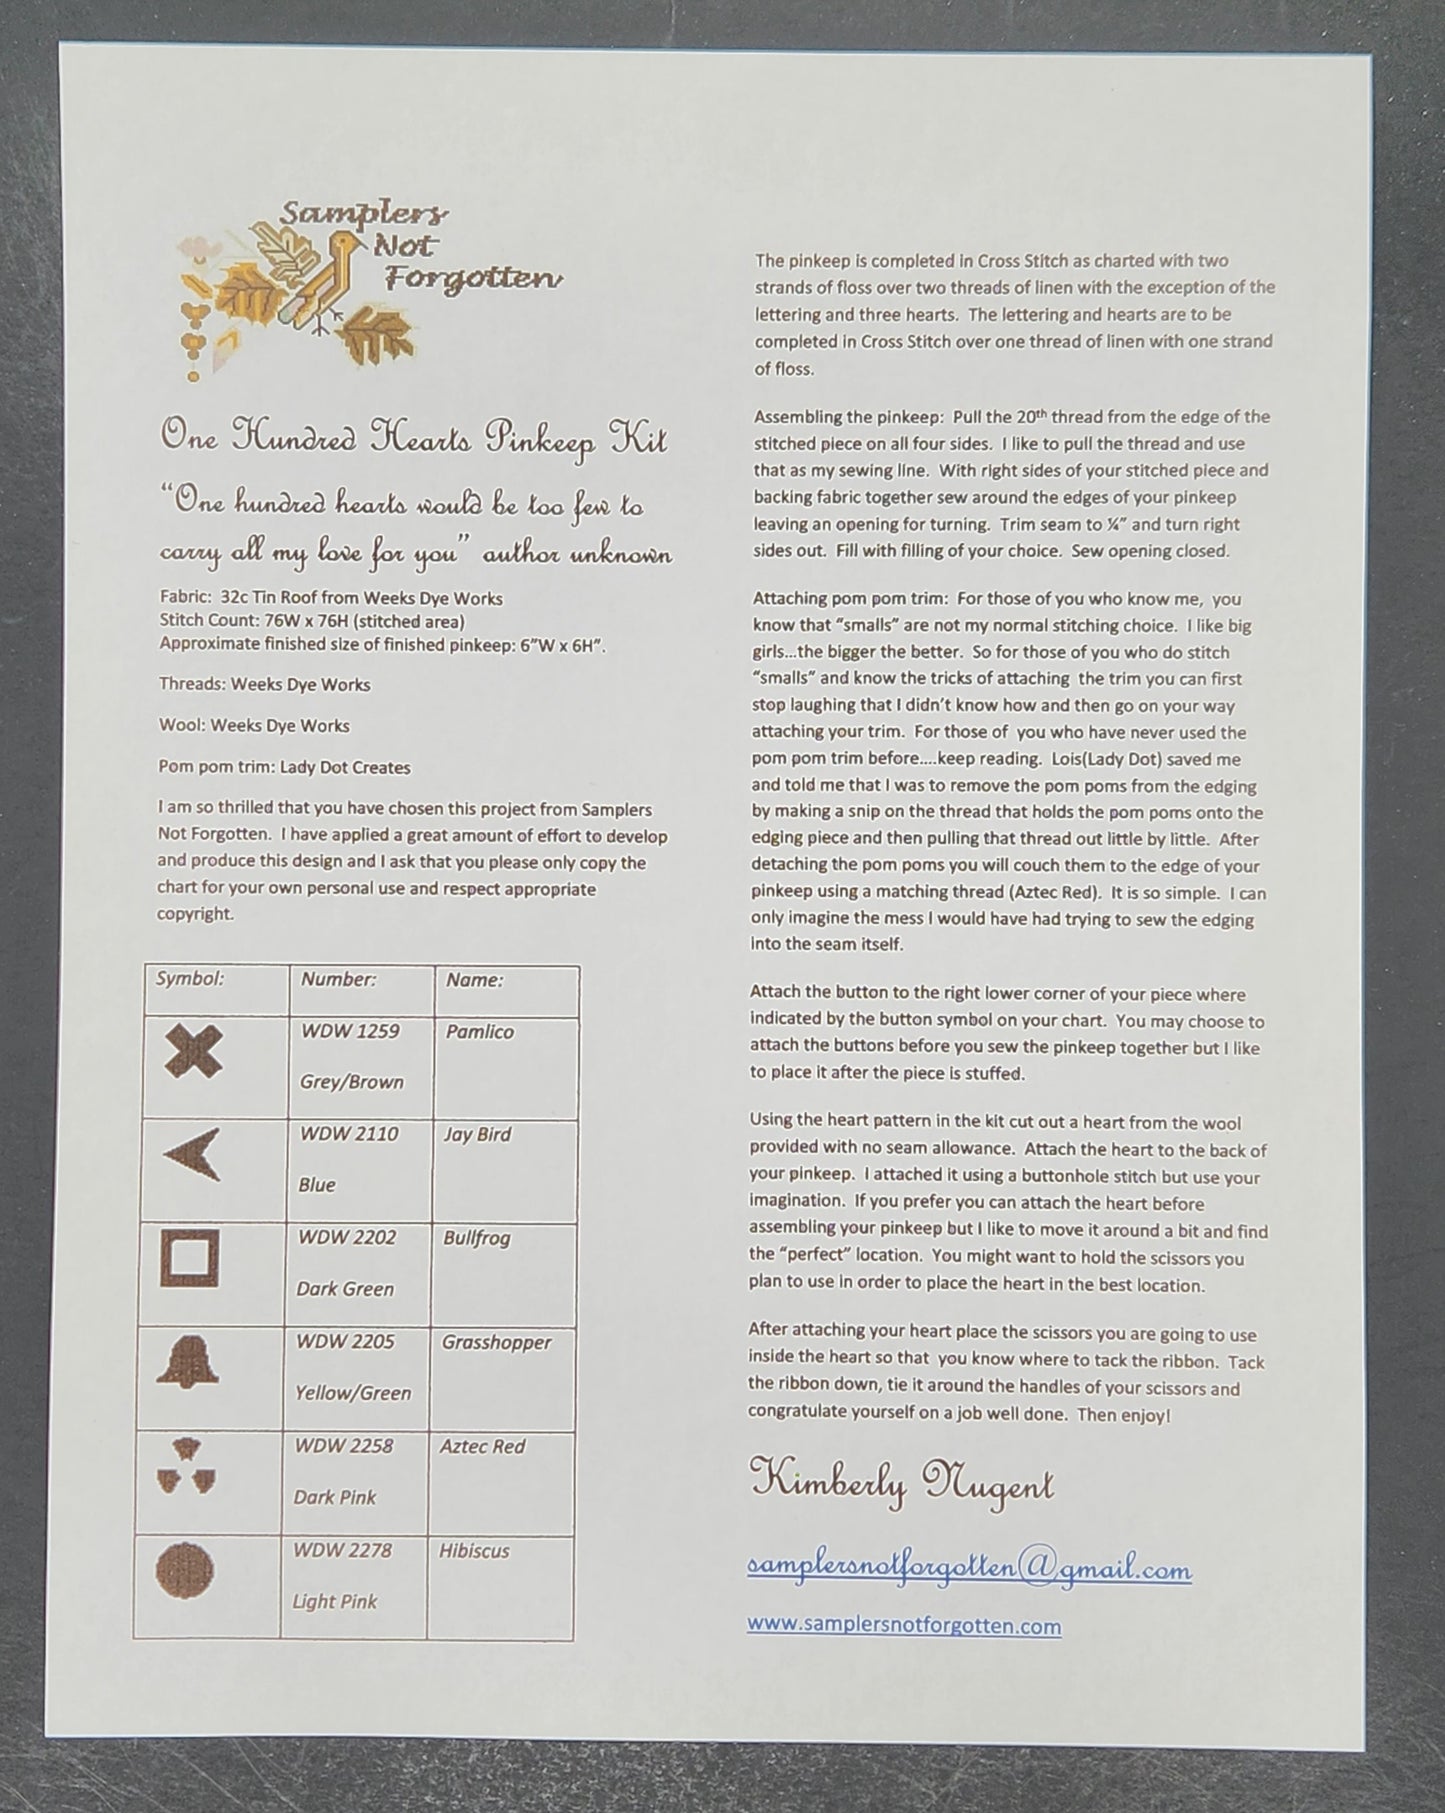 Samplers
Not
Forgotten
One Hundred Hearts Pinkeep Kit
“One hundred hearts would be too few to
carry all my love for you” author unknown
Fabric: 32c Tin Roof from Weeks Dye Works
Stitch Count: 76W x 76H (stitched area)
Approximate finished size of finished pinkeep: 6”W x 6H”.
Threads: Weeks Dye Works
Wool: Weeks Dye Works
Pom pom trim: Lady Dot Creates
I am so thrilled that you have chosen this project from Samplers
Not Forgotten. I have applied a great amount of effort to develop
and produce this design and I ask that you please only copy the
chart for your own personal use and respect appropriate
copyright.
Symbol: Number: Name:
WDW 1259 Pamlico
Grey/Brown
WDW 2110 Jay Bird
Blue
WDW 2202 Bullfrog
Dark Green
WDW 2205 Grasshopper
Yellow/Green
WDW 2258 Aztec Red
Dark Pink
WDW 2278 Hibiscus
Light Pink
The pinkeep is completed in Cross Stitch as charted with two
strands of floss over two threads of linen with the exception of the
lettering and three hearts. The lettering and hearts are to be
completed in Cross Stitch over one thread of linen with one strand
of floss.
Assembling the pinkeep: Pull the 20th thread from the edge of the
stitched piece on all four sides. I like to pull the thread and use
that as my sewing line. With right sides of your stitched piece and
backing fabric together sew around the edges of your pinkeep
leaving an opening for turning. Trim seam to ¼” and turn right
sides out. Fill with filling of your choice. Sew opening closed.
Attaching pom pom trim: For those of you who know me, you
know that “smalls” are not my normal stitching choice. I like big
girls...the bigger the better. So for those of you who do stitch
“smalls” and know the tricks of attaching the trim you can first
stop laughing that I didn’t know how and then go on your way
attaching your trim. For those of you who have never used the
pom pom trim before....keep reading. Lois(Lady Dot) saved me
and told me that I was to remove the pom poms from the edging
by making a snip on the thread that holds the pom poms onto the
edging piece and then pulling that thread out little by little. After
detaching the pom poms you will couch them to the edge of your
pinkeep using a matching thread (Aztec Red). It is so simple. I can
only imagine the mess I would have had trying to sew the edging
into the seam itself.
Attach the button to the right lower corner of your piece where
indicated by the button symbol on your chart. You may choose to
attach the buttons before you sew the pinkeep together but I like
to place it after the piece is stuffed.
Using the heart pattern in the kit cut out a heart from the wool
provided with no seam allowance. Attach the heart to the back of
your pinkeep. I attached it using a buttonhole stitch but use your
imagination. If you prefer you can attach the heart before
assembling your pinkeep but I like to move it around a bit and find
the “perfect” location. You might want to hold the scissors you
plan to use in order to place the heart in the best location.
After attaching your heart place the scissors you are going to use
inside the heart so that you know where to tack the ribbon. Tack
the ribbon down, tie it around the handles of your scissors and
congratulate yourself on a job well done. Then enjoy!
Kimberly Nugent
samplersnotforgotten@gmail.com
www.samplersnotforgotten.com